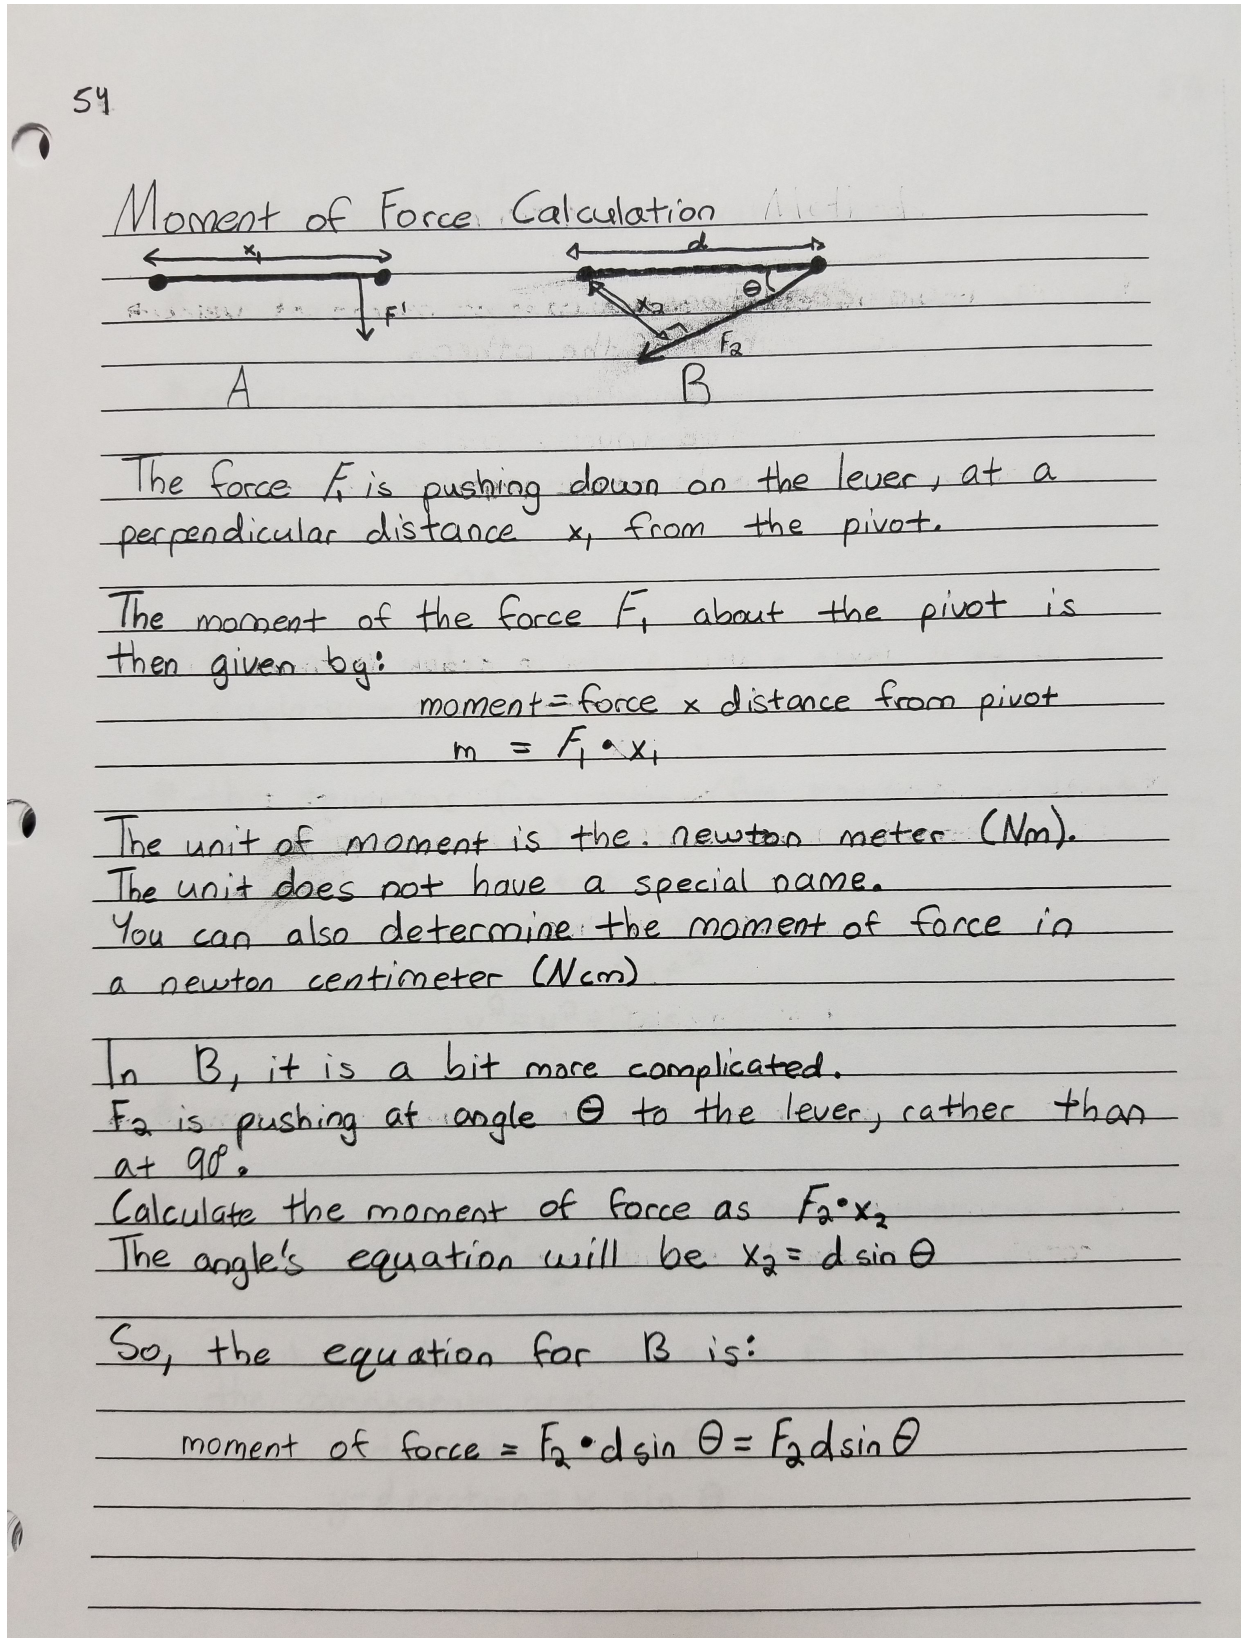 54
Moment of Force Calculation
x₁
d
F'
θ
x₂
F₂
A
B
The force F₁ is pushing down on the lever, at a
perpendicular distance x₁ from the pivot.
The moment of the force F₁ about the pivot is
then given by:
moment = force x distance from pivot
m = F₁ • x₁
The unit of moment is the newton meter (Nm).
The unit does not have a special name.
You can also determine the moment of force in
a newton centimeter (Ncm)
In B, it is a bit more complicated.
F₂ is pushing at angle θ to the lever, rather than
at 90°.
Calculate the moment of force as F₂•x₂
The angle's equation will be x₂ = d sin θ
So, the equation for B is:
moment of force = F₂ • d sin θ = F₂ d sin θ